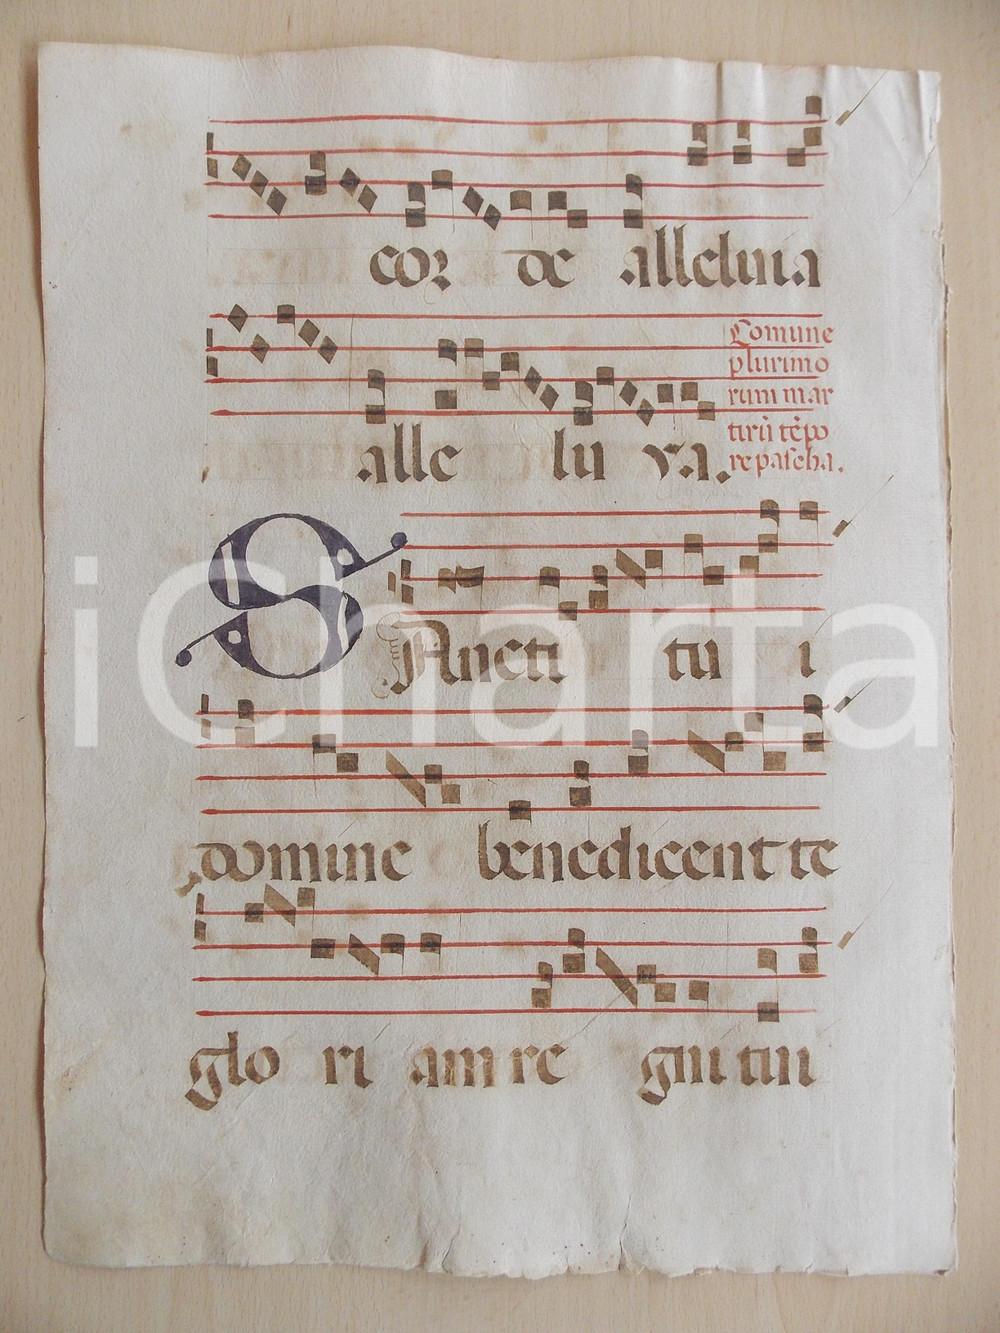 cor de alleluia
alle lu ya.
Comune
plurimo
rum mar
tirũ tẽpo
re pascha.
SAncti tu i
domine benedicent te
glo ri am re gni tui
iCharta